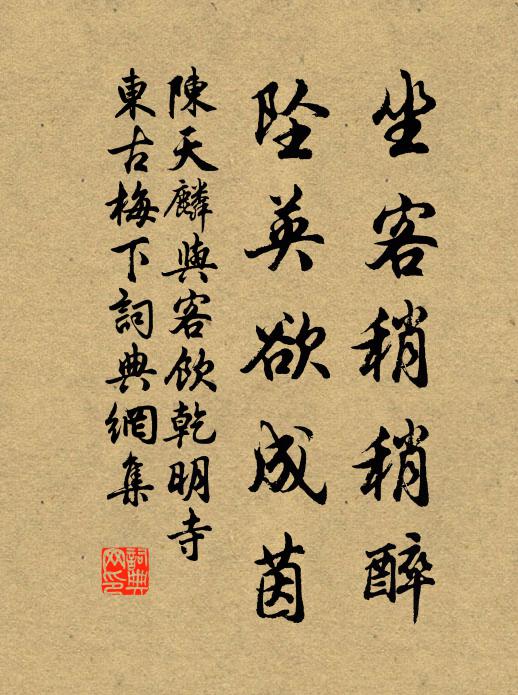 坐客稍稍醉
坠英欲成茵
陳天麟與客飲乾明寺
東古梅下詞典網集
詞典
网印